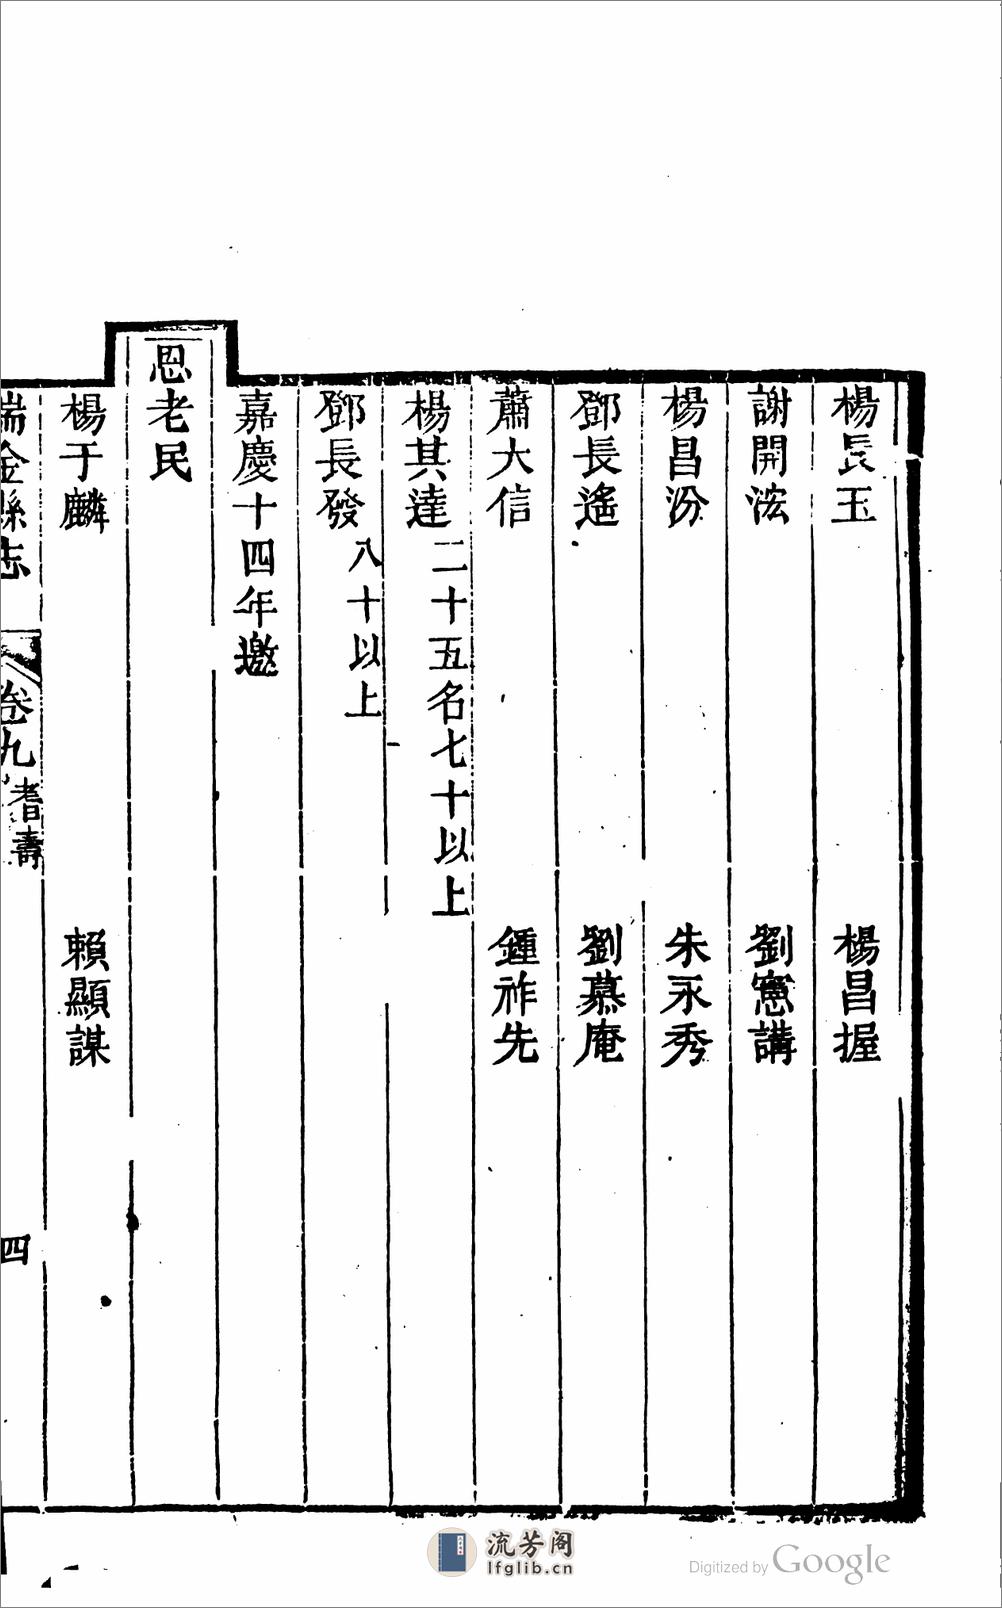 楊長玉　楊昌握
謝開浤　劉憲講
楊昌汾　朱永秀
鄧長遙　劉慕庵
蕭大信　鍾祚先
楊其達二十五名七十以上
鄧長發八十以上
嘉慶十四年邀
恩老民
楊于麟　賴顯謀
瑞金縣志　卷九　耆壽　四
流芳阁
lfglib.cn
Digitized by Google